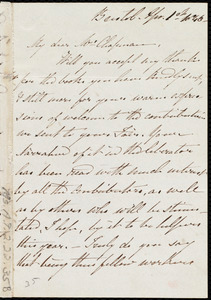 Bristol. Apr. 1st
My dear Mrs Chapman,
Will you accept my thanks
for the books you have kindly sent,
& still more for your warm
some of welcome to the contributions
we sent to yours Fair. Your
narrative of it in the liberator
has been read with much interest
by all the Contributors, as well
as by others who will be stimu-
lated, I hope, by it to be helpers
this year. – Truly do you say
that being thus fellow workers
35